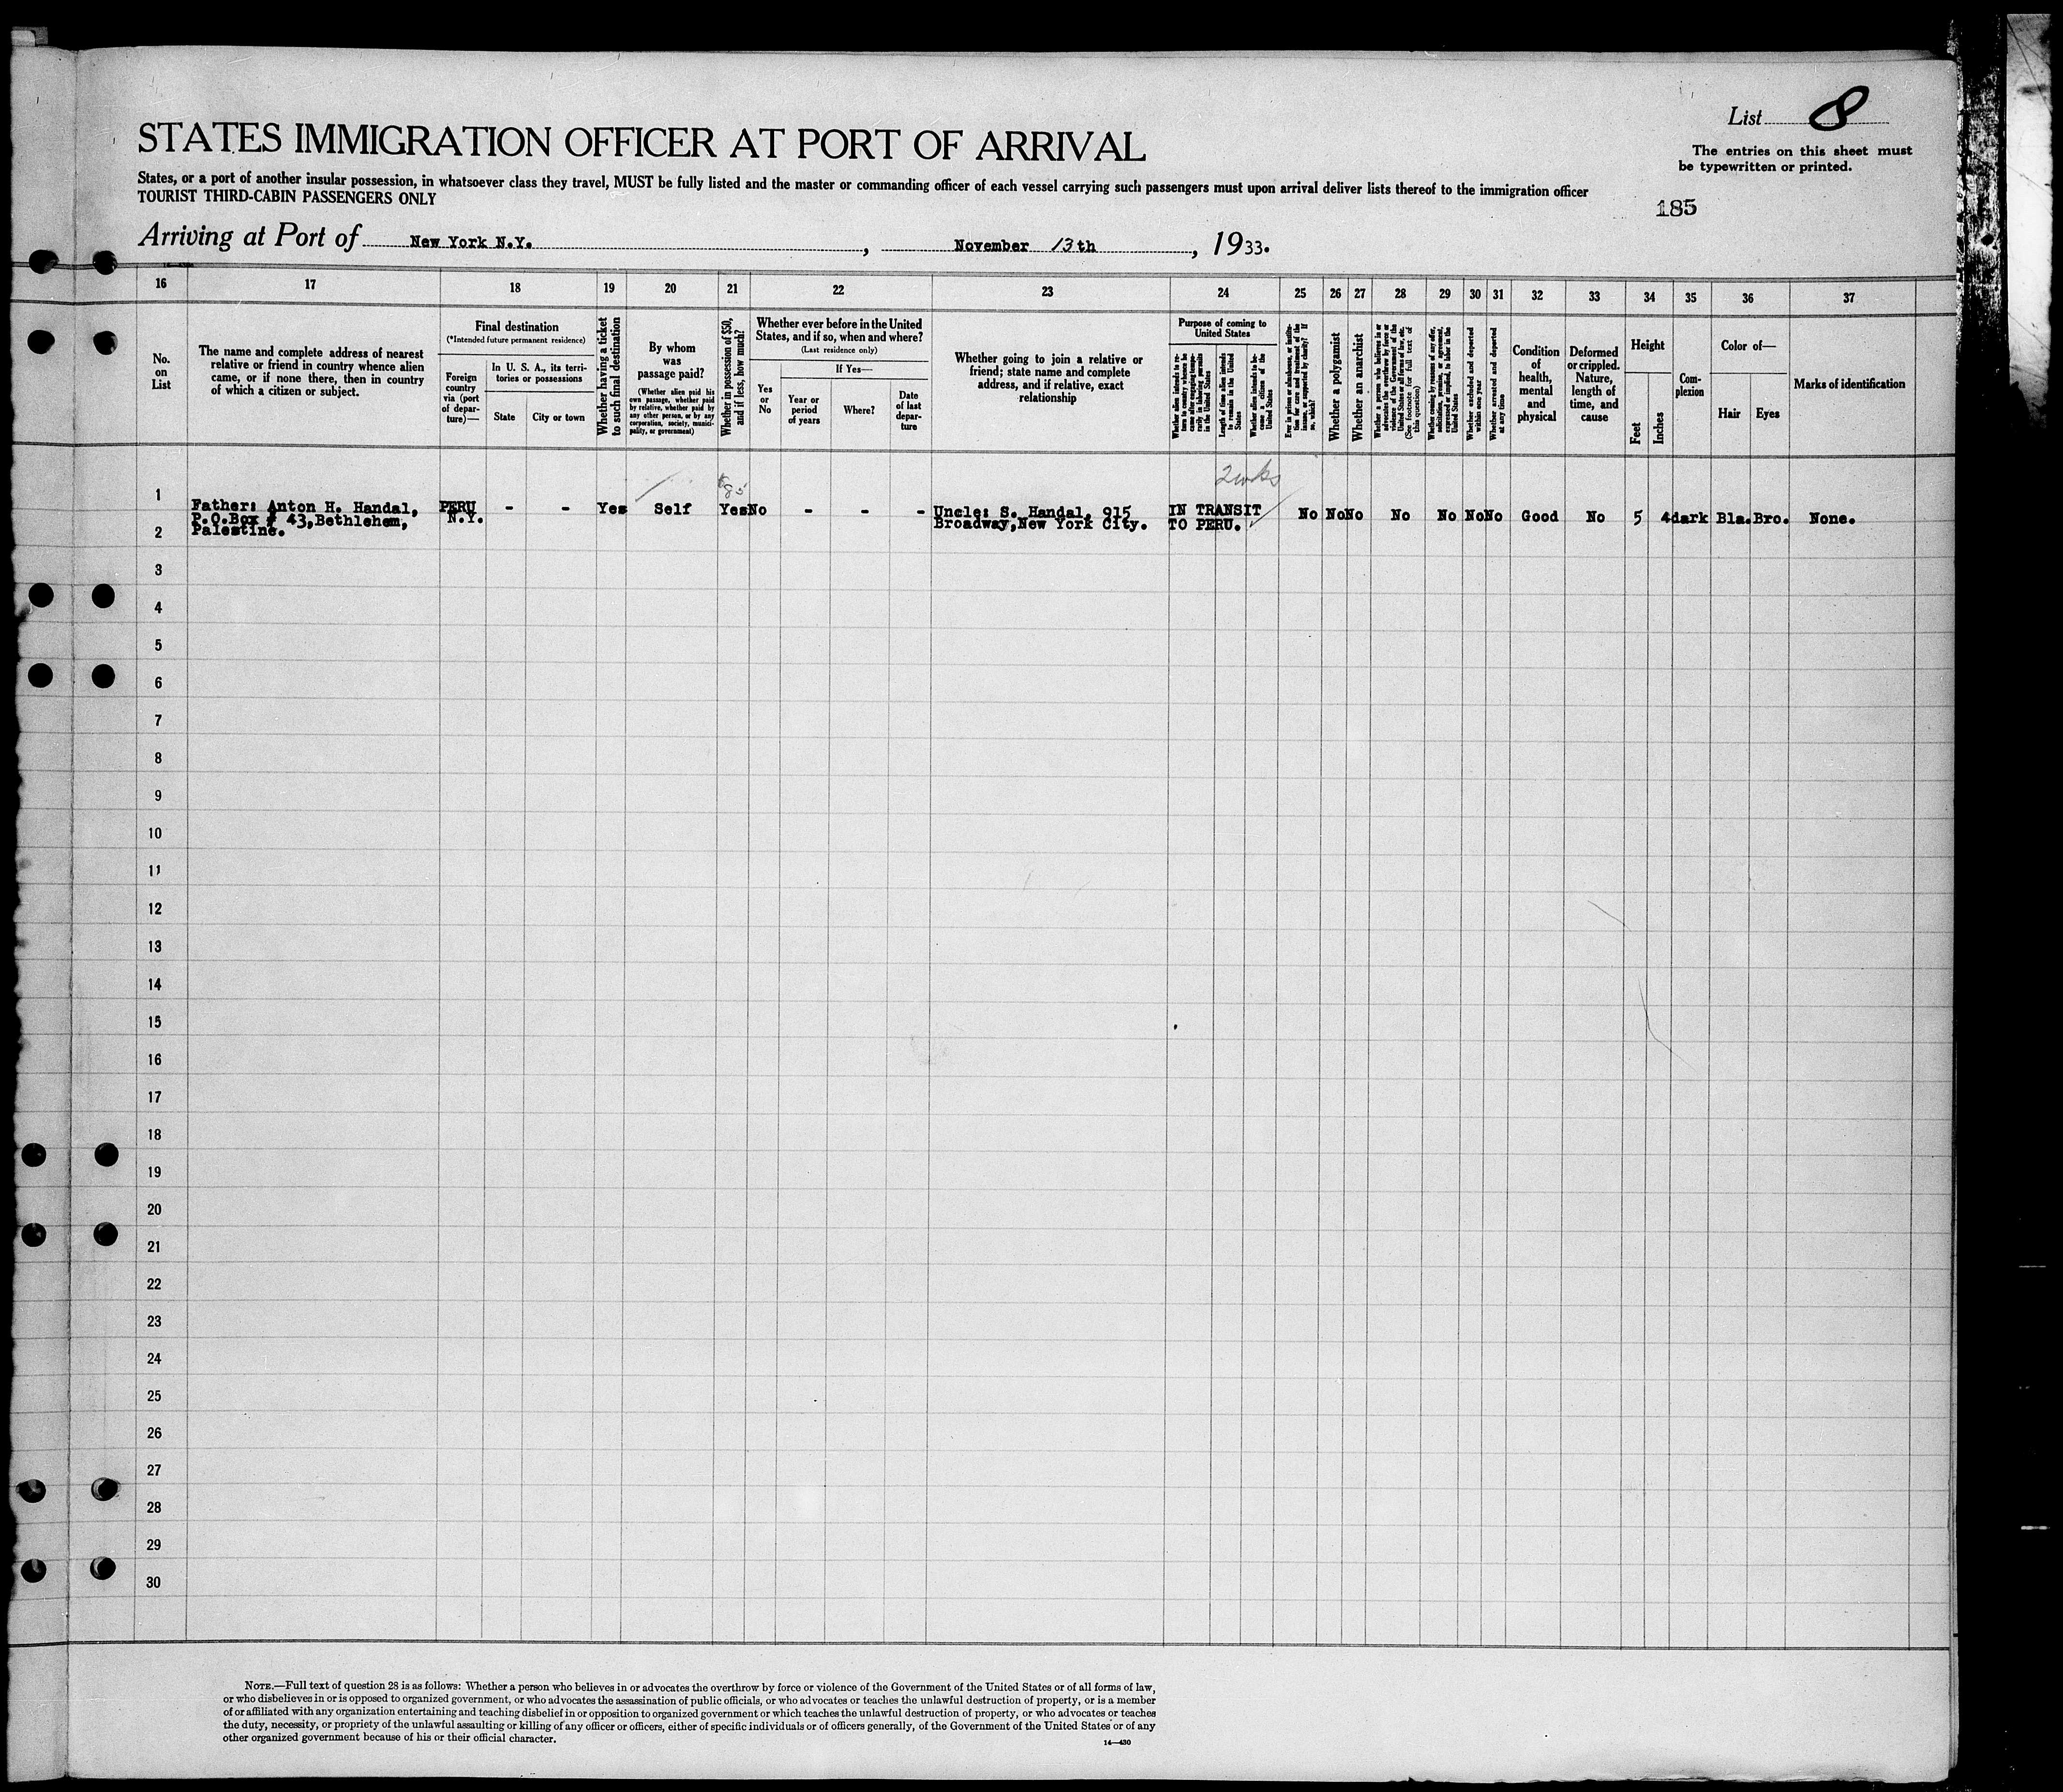 List 8
STATES IMMIGRATION OFFICER AT PORT OF ARRIVAL
The entries on this sheet must
be typewritten or printed.
States, or a port of another insular possession, in whatsoever class they travel, MUST be fully listed and the master or commanding officer of each vessel carrying such passengers must upon arrival deliver lists thereof to the immigration officer
TOURIST THIRD-CABIN PASSENGERS ONLY
185
Arriving at Port of New York N.Y., November 13th, 1933.
16 17 18 19 20 21 22 23 24 25 26 27 28 29 30 31 32 33 34 35 36 37
No.
on
List
The name and complete address of nearest
relative or friend in country whence alien
came, or if none there, then in country
of which a citizen or subject.
Final destination
(*Intended future permanent residence)
Foreign
country
via (port
of depar-
ture)—
In U. S. A., its terri-
tories or possessions
State
City or town
Whether having a ticket
to such final destination
By whom
was
passage paid?
(Whether alien paid his
own passage, whether paid
by relative, whether paid by
any other person, or by any
corporation, society, munici-
pality, or government)
Whether in possession of $50,
and if less, how much?
Whether ever before in the United
States, and if so, when and where?
(Last residence only)
Yes
or
No
If Yes—
Year or
period
of years
Where?
Date
of last
depar-
ture
Whether going to join a relative or
friend; state name and complete
address, and if relative, exact
relationship
Purpose of coming to
United States
Whether alien intends to re-
turn to country whence he
came after engaging tempo-
rarily in laboring pursuits
in the United States
Length of time alien intends
to remain in the United
States
Whether alien intends to be-
come a citizen of the
United States
Ever in prison or almshouse, or institu-
tion for care and treatment of the
insane, or supported by charity? If
so, which?
Whether a polygamist
Whether an anarchist
Whether a person who believes in or
advocates the overthrow by force or
violence of the Government of the
United States or all forms of law, etc.
(See footnote for full text of
this question)
Whether coming by reason of any offer,
solicitation, promise, or agreement,
expressed or implied, to labor in the
United States
Whether excluded and deported
within one year
Whether arrested and deported
at any time
Condition
of
health,
mental
and
physical
Deformed
or crippled.
Nature,
length of
time, and
cause
Height
Feet
Inches
Com-
plexion
Color of—
Hair
Eyes
Marks of identification
2 wks
$85
1
Father: Anton H. Handal, PERU - - Yes Self Yes No - - - Uncle: S. Handal, 915 IN TRANSIT No No No No No No No Good No 5 4 dark Bla. Bro. None.
P.O.Box # 43,Bethlehem, N.Y. Broadway,New York City. TO PERU.
2 Palestine.
3
4
5
6
7
8
9
10
11
12
13
14
15
16
17
18
19
20
21
22
23
24
25
26
27
28
29
30
NOTE.—Full text of question 28 is as follows: Whether a person who believes in or advocates the overthrow by force or violence of the Government of the United States or of all forms of law,
or who disbelieves in or is opposed to organized government, or who advocates the assassination of public officials, or who advocates or teaches the unlawful destruction of property, or is a member
of or affiliated with any organization entertaining and teaching disbelief in or opposition to organized government or which teaches the unlawful destruction of property, or who advocates or teaches
the duty, necessity, or propriety of the unlawful assaulting or killing of any officer or officers, either of specific individuals or of officers generally, of the Government of the United States or of any
other organized government because of his or their official character.
14—430